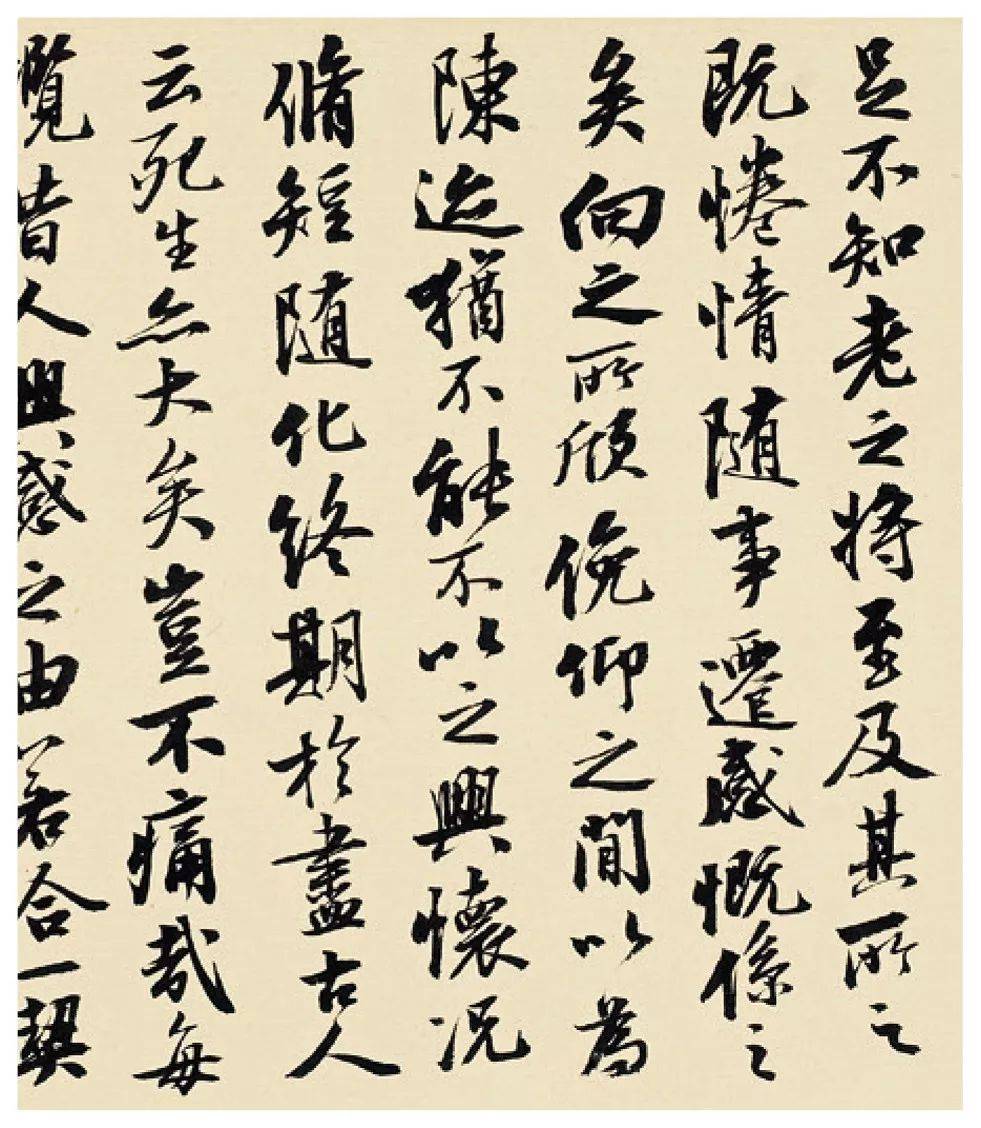 足不知老之將至及其所之
既惓情随事遷感慨係之
矣向之所欣俛仰之閒以為
陳迹猶不能不以之興懷况
脩短随化終期於盡古人
云死生亦大矣豈不痛哉每
攬昔人興感之由若合一契